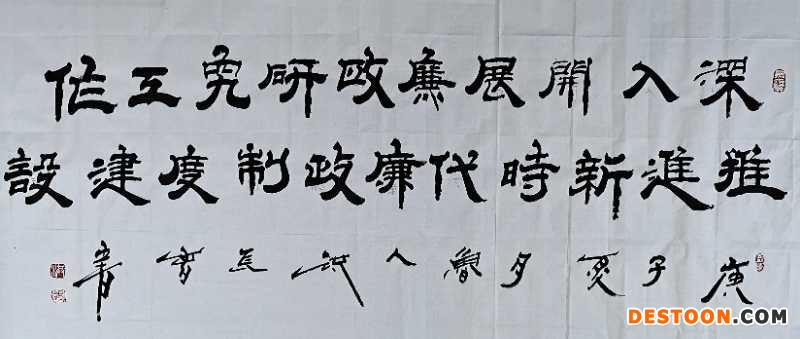 深入開展廉政研究工作
推進新時代廉政制度建設
庚子夏月魯人
DESTOON.COM